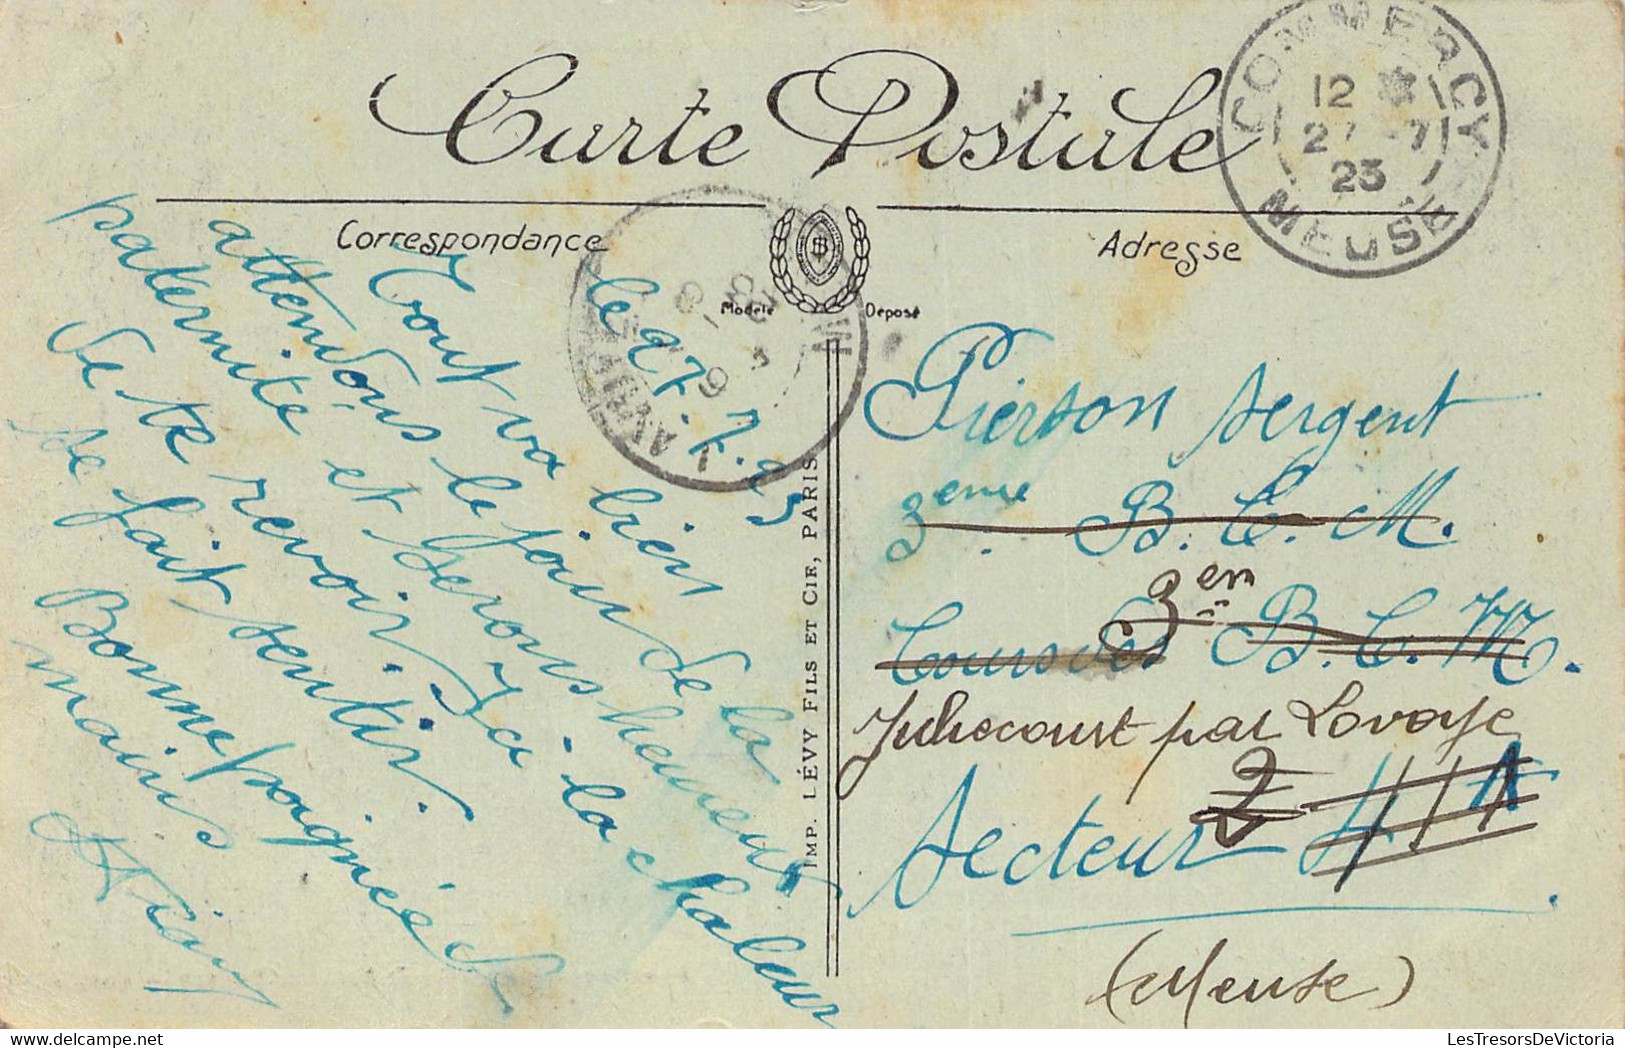 Carte Postale
COMMERCY
12
27-7
23
MEUSE
Correspondance
Adresse
Modèle Déposé
le 27.7.23
Tout va bien
attendons le jour de la
paternité et serons heureux
de te revoir. Ici la chaleur
se fait sentir.
Bonne poignée de
mains
Pierson sergent
3eme B.C.M.
3em B.C.M.
Jubécourt par Lavoye
Secteur
(Meuse)
IMP. LÉVY FILS ET CIE, PARIS
LesTresorsDeVictoria.com